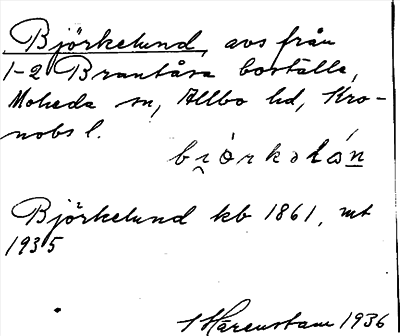 Björkelund, avs från
1-2 Brantåsa boställe,
Moheda sn, Allbo hd, Kro-
nobs l.
Björkelund kb 1861, mt
1935
Härenstam 1936